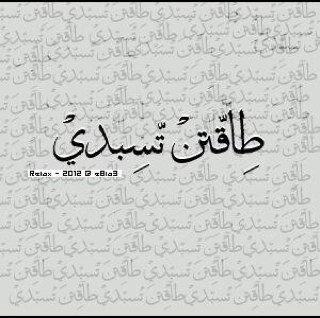 طِاقّتنْ تّسِبّديْ
Relax - 2012 @ eBla3